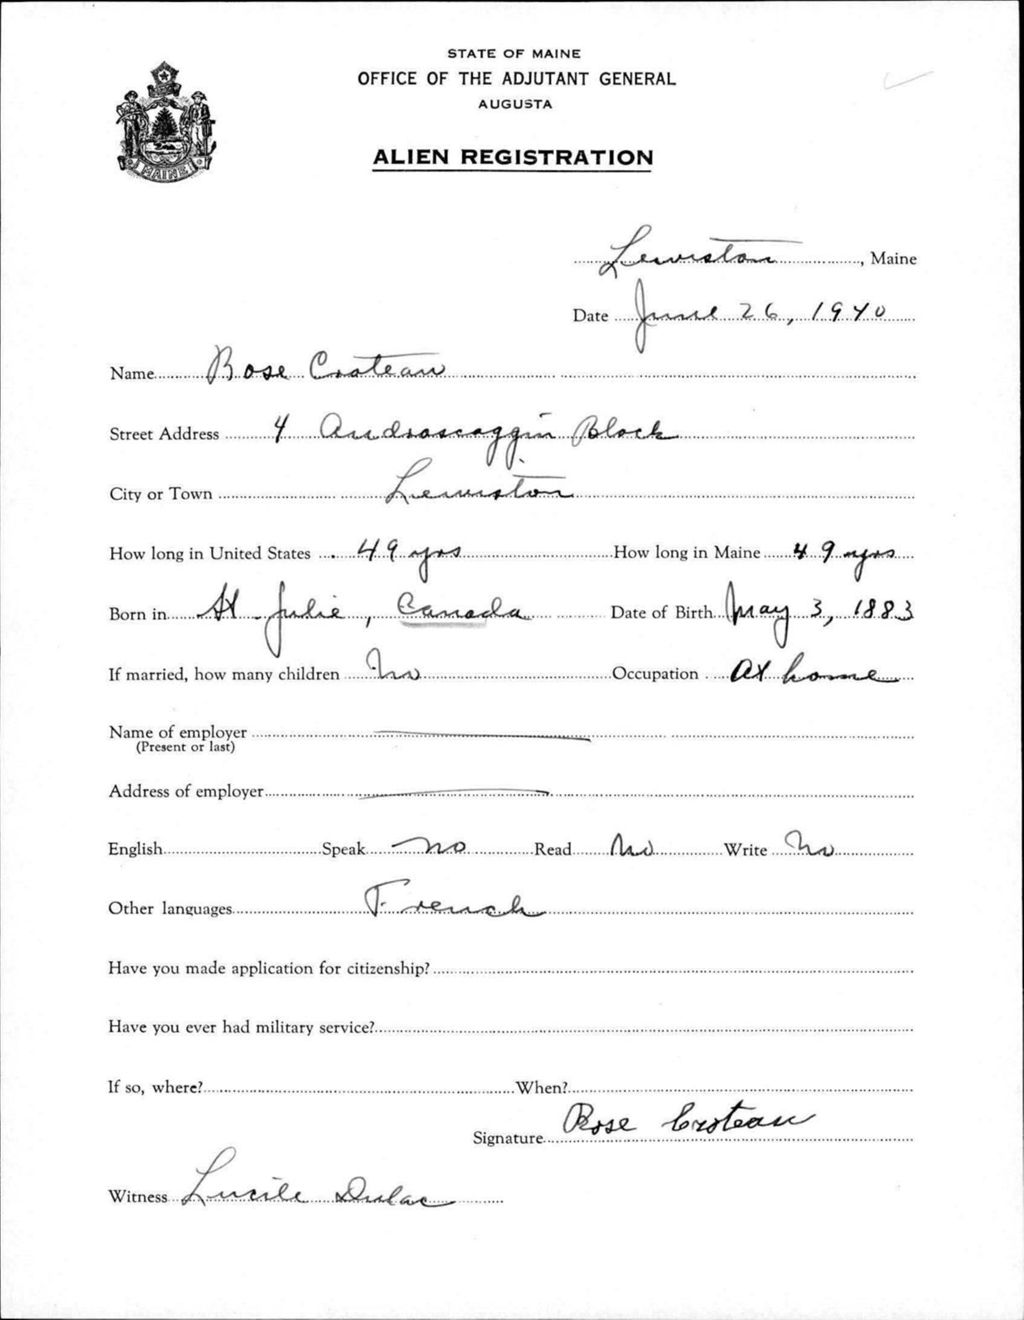 STATE OF MAINE
OFFICE OF THE ADJUTANT GENERAL
AUGUSTA
ALIEN REGISTRATION
MAINE
Lewiston, Maine
Date June 26, 1940
Name Rose Croteau
Street Address 4 Androscoggin Block
City or Town Lewiston
How long in United States 49 yrs How long in Maine 49 yrs
Born in St. Julie, Canada Date of Birth May 3, 1883
If married, how many children No Occupation At home
Name of employer
(Present or last)
Address of employer
English Speak no Read No Write No
Other languages French
Have you made application for citizenship?
Have you ever had military service?
If so, where? When?
Signature Rose Croteau
Witness Lucile Dulac